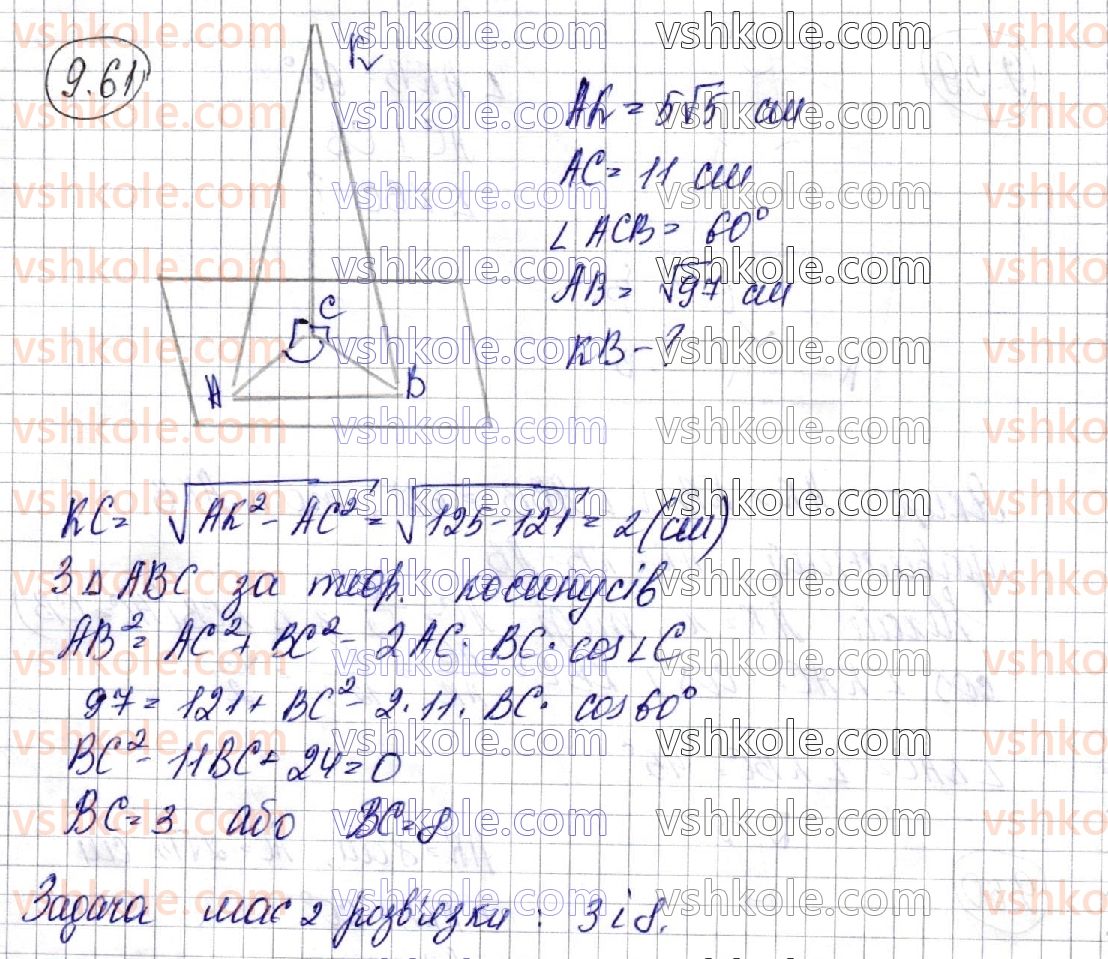 9.61
K
C
A
B
AK = 5√5 см
AC = 11 см
∠ACB = 60°
AB = √97 см
KB - ?
KC = √AK² - AC² = √125-121 = 2 (см)
З △ABC за теор. косинусів
AB² = AC² + BC² - 2AC · BC · cos∠C
97 = 121 + BC² - 2 · 11 · BC · cos60°
BC² - 11BC + 24 = 0
BC = 3 або BC = 8
Задача має 2 розв'язки : 3 і 8.
vshkole.com